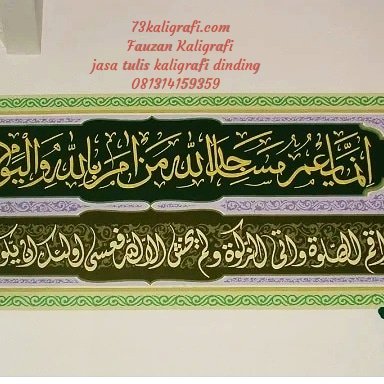 73kaligrafi.com
Fauzan Kaligrafi
jasa tulis kaligrafi dinding
081314159359
انما يعمر مسجد الله من امن بالله واليو
اقام الصلوة واتى الزكوة ولم يخش الا الله فعسى اولئك ان يكو